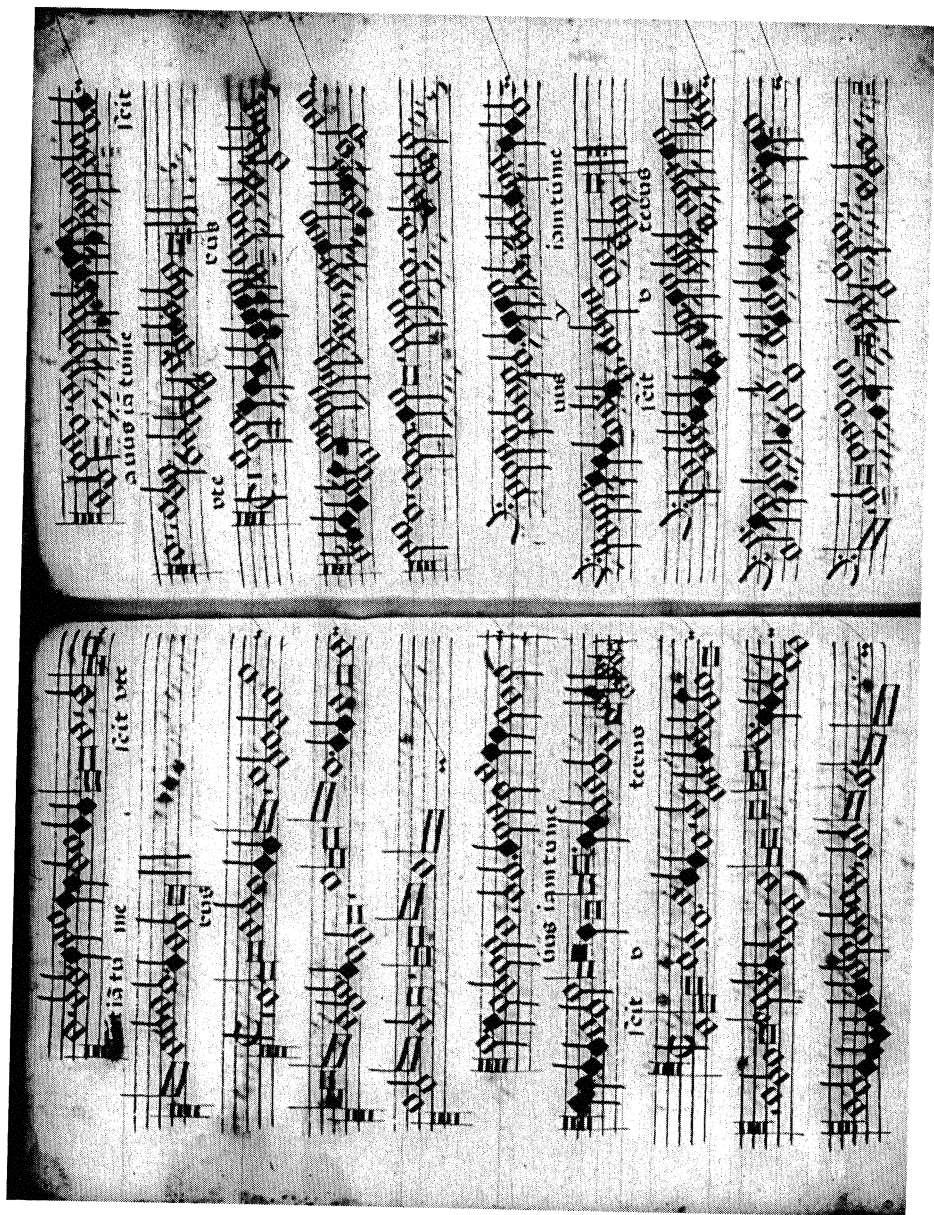 iā tu me scit vte
rus
uus iam tu me
scit v terus
uus iā tu me scit
vte rus
uus iam tu me
scit v terus